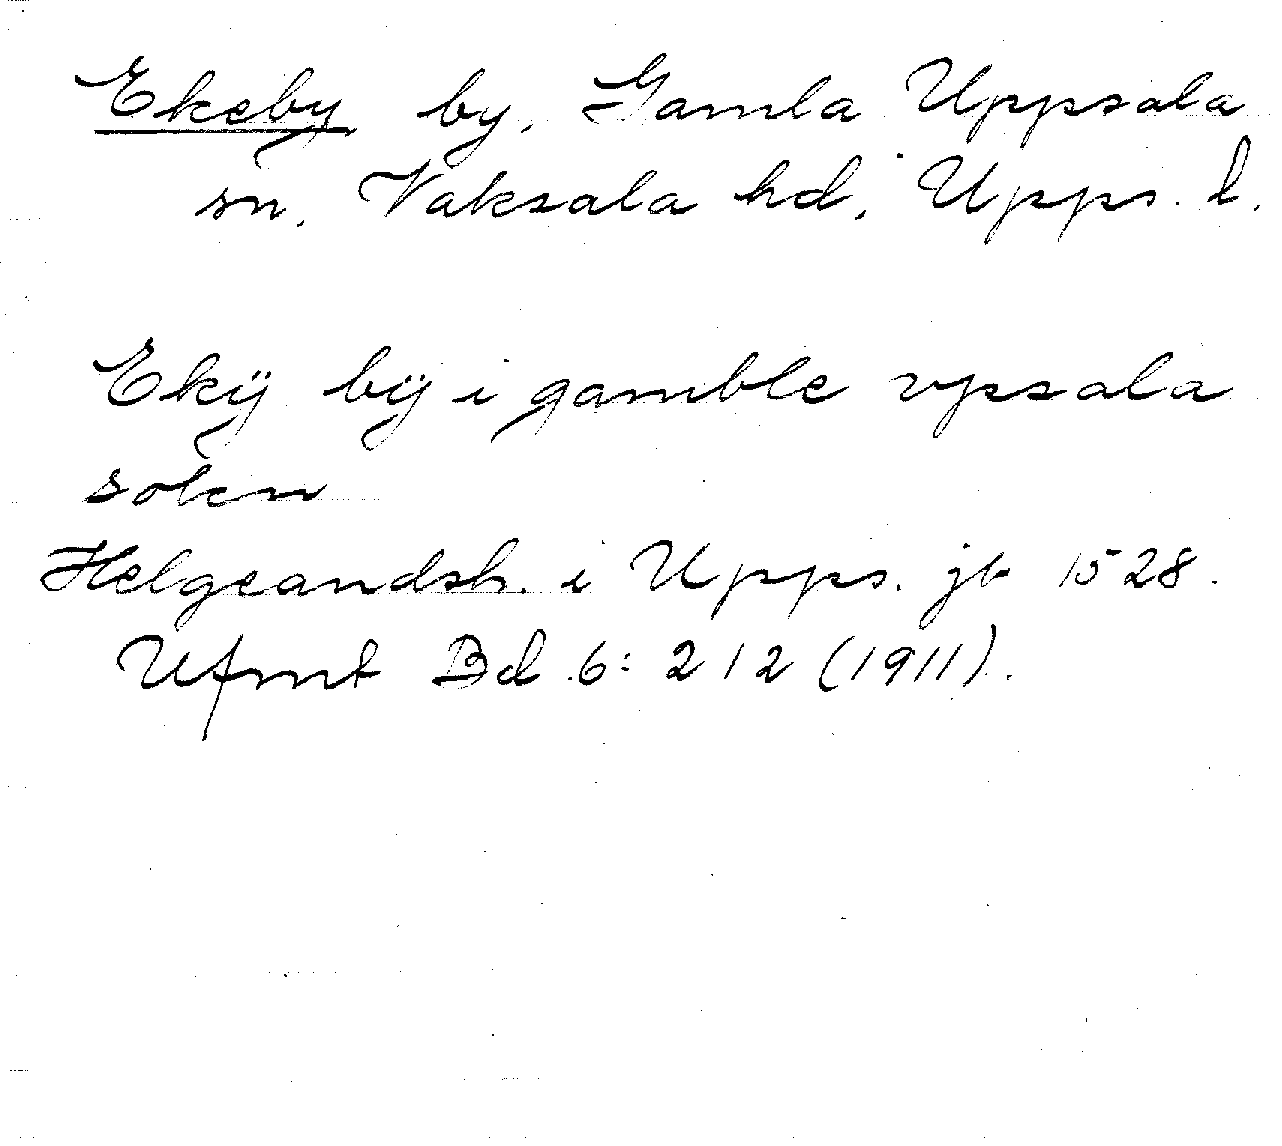 Ekeby by, Gamla Uppsala
sn, Vaksala hd, Upps. l.
Ekÿ bÿ i gamble vpsala
sokn
Helgeandsh. i Upps. jb 1528.
Ufmt Bd 6: 212 (1911).